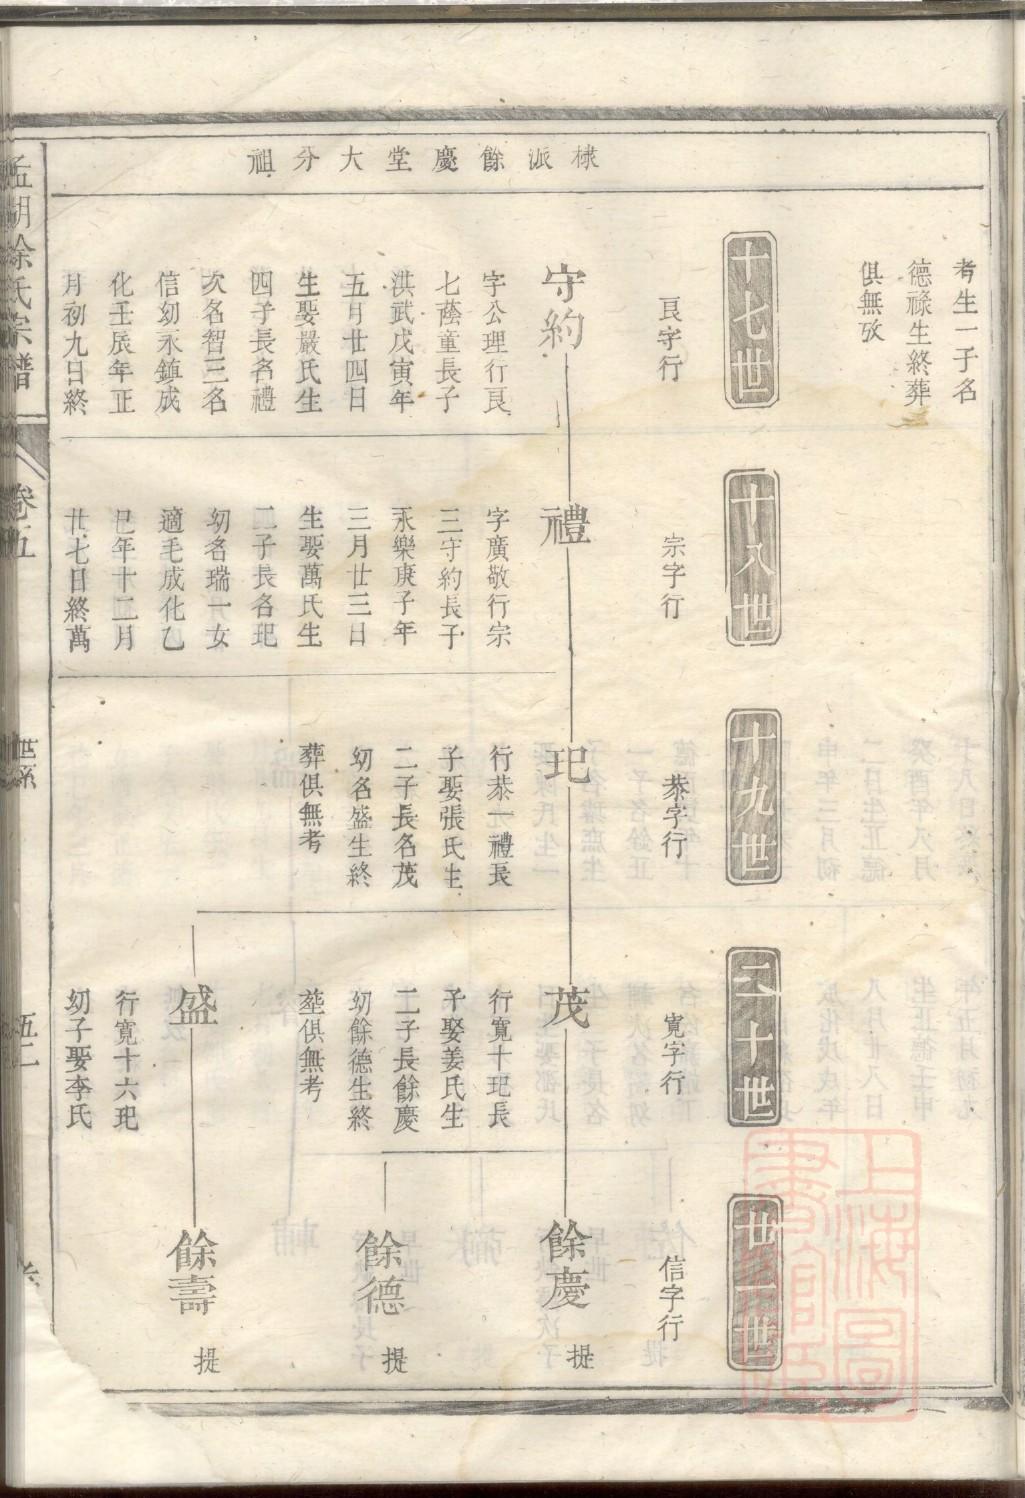 棣派餘慶堂大分祖
考生一子名
德祿生終葬
俱無攷
十七世
良字行
守約
字公理行良
七蔭童長子
洪武戊寅年
五月廿四日
生娶嚴氏生
四子長名禮
次名智三名
信幼永鎮成
化壬辰年正
月初九日終
十八世
宗字行
禮
字廣敬行宗
三守約長子
永樂庚子年
三月廿三日
生娶萬氏生
二子長名玘
幼名瑞一女
適毛成化乙
巳年十二月
廿七日終萬
十九世
恭字行
玘
行恭一禮長
子娶張氏生
二子長名茂
幼名盛生終
葬俱無考
二十世
寬字行
茂
行寬十玘長
子娶姜氏生
二子長餘慶
幼餘德生終
塟俱無考
盛
行寬十六玘
幼子娶李氏
廿一世
信字行
餘慶
提
餘德
提
餘壽
提
孟湖徐氏宗譜
卷五
世系
上海圖書館藏